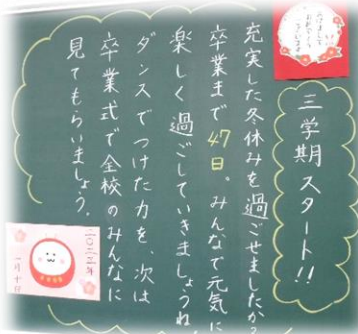 あけまして
おめでとう
ございます
三学期スタート!!
充実した冬休みを過ごせましたか?
卒業まで47日。みんなで元気に
楽しく過ごしていきましょうね
ダンスでつけた力を、次は
卒業式で全校のみんなに
見てもらいましょう。
二〇二二年
一月十日